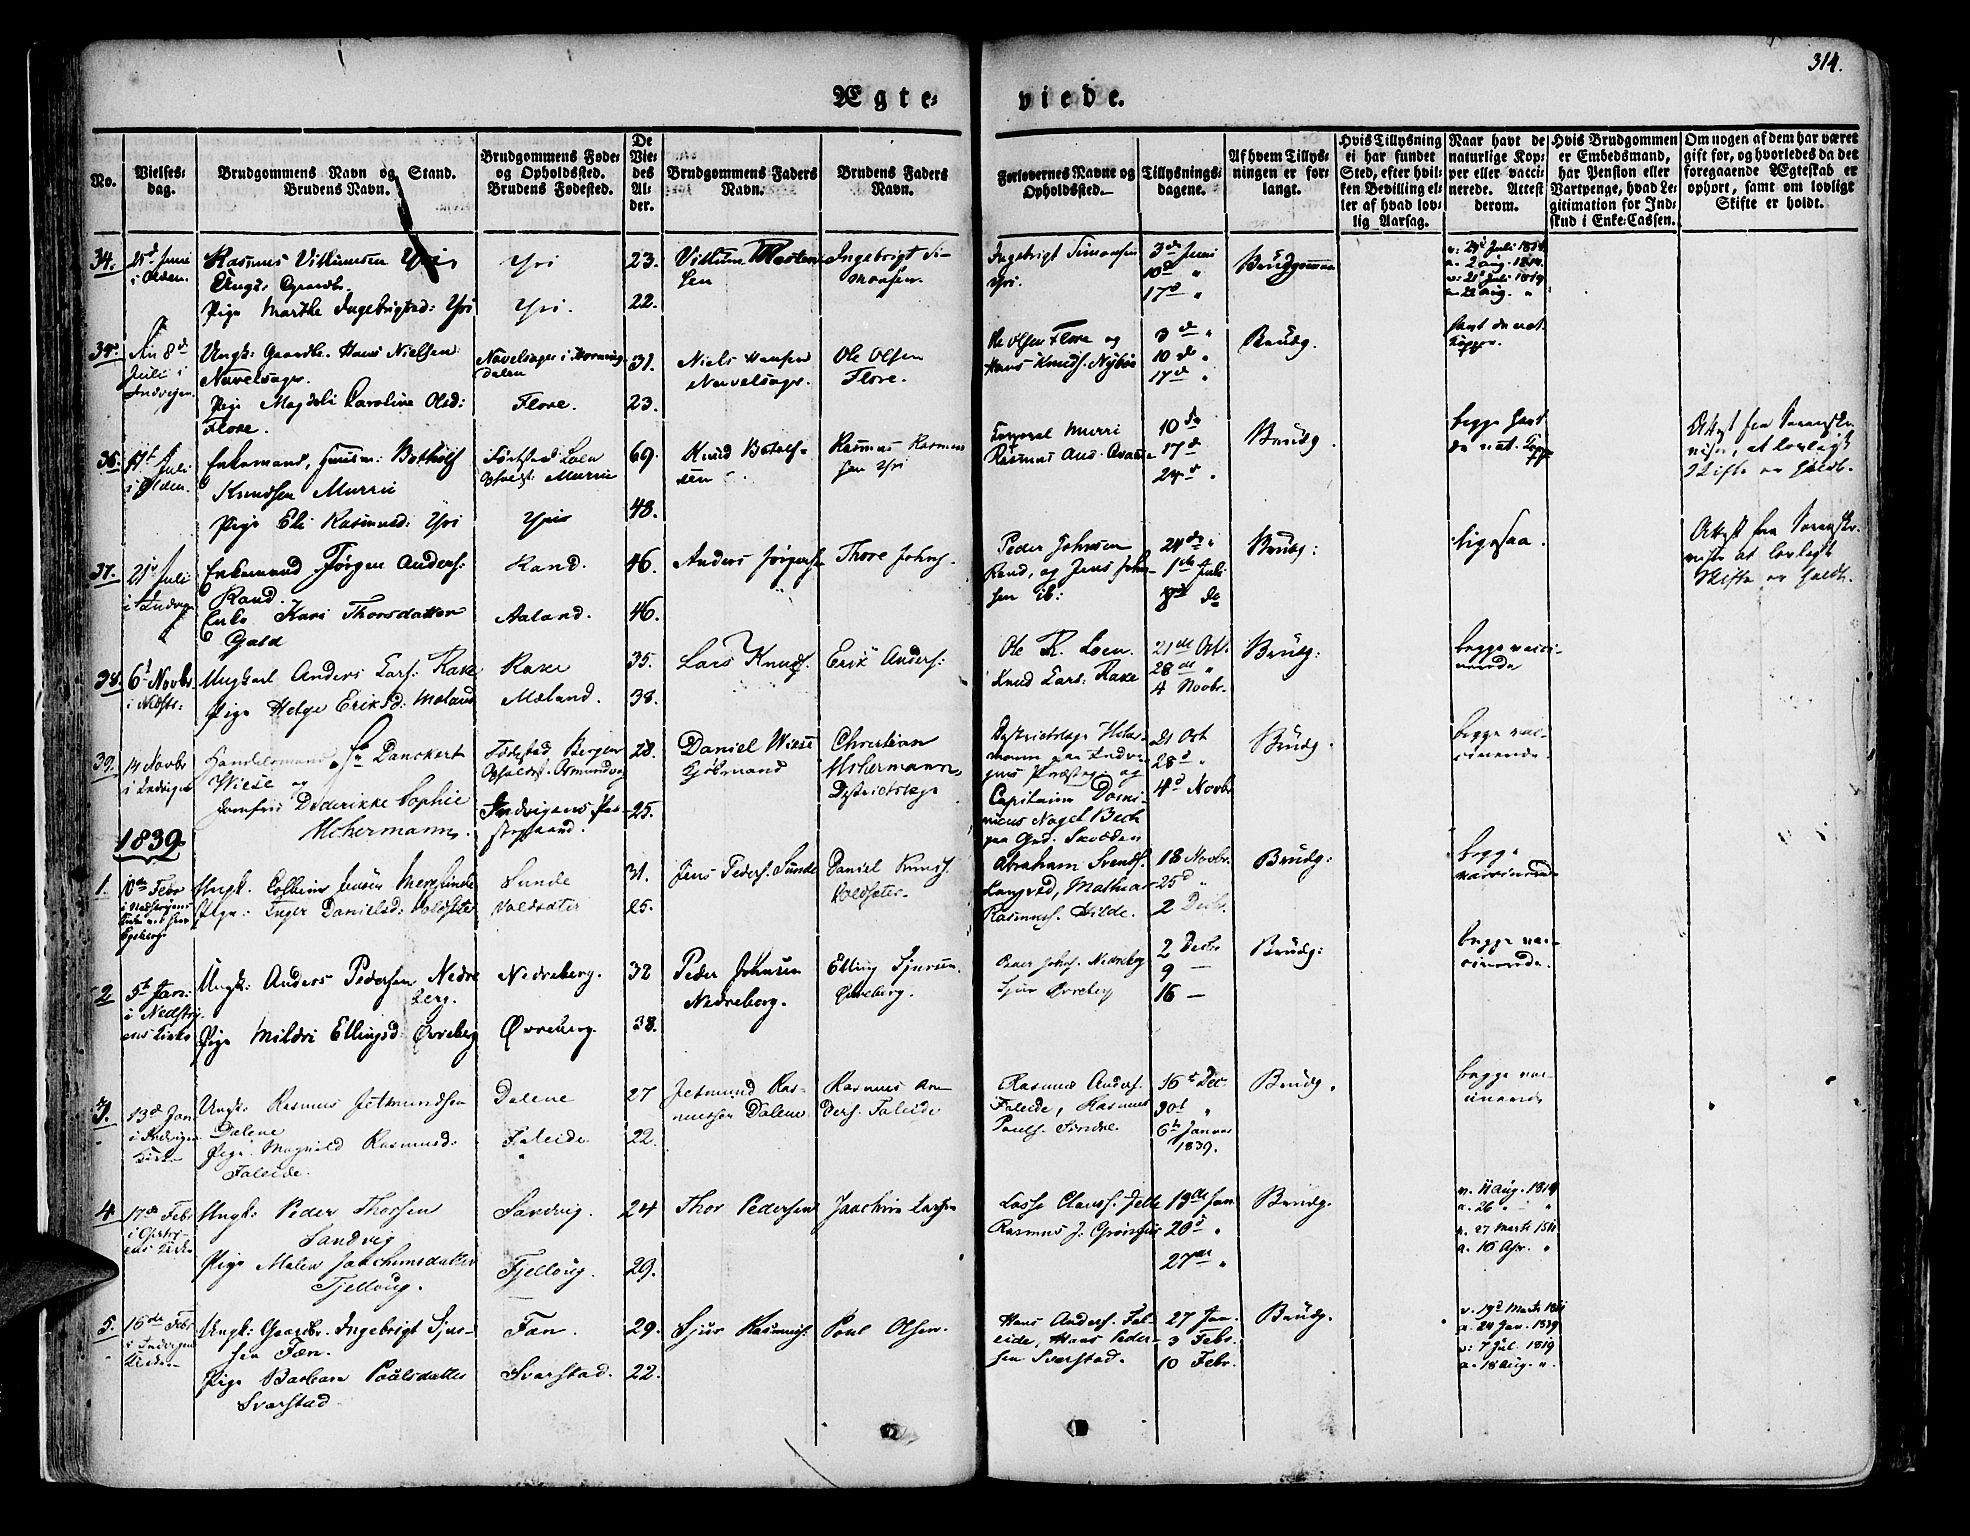 314.
Ægte-
viede.
No.
Vielses-
dag.
Brudgommens Navn og Stand.
Brudens Navn.
Brudgommens Føde-
og Opholdssted.
Brudens Fødested.
De
Vie-
des
Al-
der.
Brudgommens Faders
Navn.
Brudens Faders
Navn.
Forlovernes Navne og
Opholdssted.
Tillysnings-
dagene.
Af hvem Tillys-
ningen er for-
langt.
Hvis Tillysning
ei har fundet
Sted, efter hvil-
ken Bevilling el-
ler af hvad lov-
lig Aarsag.
Naar havt de
naturlige Kop-
per eller vacci-
nerede. Attest
derom.
Hvis Brudgommen
er Embedsmand,
har Pension eller
Vartpenge, hvad Le-
gitimation for Ind-
skud i Enke-Cassen.
Om nogen af dem har været
gift før, og hvorledes da det
foregaaende Ægteskab er
ophørt, samt om lovligt
Skifte er holdt.
34.
Juni
i Olden.
Rasmus Villumsen Yri,
Pige Marthe Ingebrigtsd: Yri
Yri
Yri.
23.
22.
Villum
sen
Ingebrigt Si-
monsen.
Ingebrigt Simonsen
Yri.
3de Juni
10d "
17d "
Brudgommen
a. 2 aug. 1814.
v: 21d Juli 1819
a. 22 aug. "
35.
8d
Juli i
Indvigen
Ungk: Gaardb. Hans Nielsen
Navelsager.
Pige Magdeli Caroline Olsd:
Flore.
Navelsager i Horning-
dalen
Flore.
31.
23.
Niels Hansen
Navelsager.
Ole Olsen
Flore.
Ole Olsen Flore og
Hans Knuds. Nybøe
3d "
10de "
17d "
Brudg.
havt de nat.
kopper.
36.
Juli
i Olden.
Enkemand, Huusm: Botholf
Knudsen Murrii
Pige Eli Rasmusd: Yri
Fødested: Loen
Opholdst: Murrii
Yrie
69.
48.
Knud Botolf-
sen
Rasmus Rasmus-
sen Yri
Corporal Murri
Rasmus And.
10de
17d
24d "
Brudg.
begge havt
de nat. Kopper
Attest fra Sorenskr-
iver, at lovligt
Skifte er holdt.
37.
21d Juli
i Indvigen
Enkemand Jørgen Anders:
Rand.
Enke Kari Thorsdatter
Gald
Rand.
Aaland.
46.
46.
Anders Jørgens
Thore Johns.
Peder Johnsen
Rand, og Jens John-
sen ib:
24de "
1ste Juli
8d do
Brudg:
ligesaa.
Attest fra Sorenskr-
iver at lovligt
Skifte er holdt.
38.
6d Novbr
i Nedstr:
Ungkarl Anders Lars: Rake
Pige Helge Eriksd: Mæland
Rake
Mæland.
35.
38.
Lars Knuds.
Erik Anders:
Ole R. Loen.
Knud Lars: Rake
21de Oct.
28de "
4 Novbr.
Brudg:
begge vacci-
nerede
39.
14 Novbr
i Indvigen
Handelsmand Hr. Danckert
Wiese og
Jomfrue Dederikke Sophie
Uchermann.
Fødested Bergen
Opholdst. Osmundsvog
Indvigens Præ-
stegaard.
28.
25.
Daniel Wiese
Kjøbmand
Christian
Uchermann,
Districtslæge
Districtslæge Ucher-
mann paa Indvi-
gens Præsteg. og
Capitaine Domi-
nicus Nagel Bech
paa Grd. Skaaden
21 Oct
28d "
4d Novbr
Brudg.
begge vac-
cinerede.
1839.
1.
10de Febr
Ungk. Colbein Jensen Sunde
Pige: Inger Danielsd: Voldsæter
Sunde
Voldsæter
31.
25.
Jens Peders. Sunde
Daniel Knuds.
Voldsæter.
Abraham Svends.
Langsæd, Mathias
Rasmuss. Hilde.
18 Novbr.
25d "
2 Decbr.
Brudg:
begge
vaccinerede
2
5te Jan:
i Nedstry-
ens Kirke
Ungk: Anders Pedersen Nedre
berg.
Pige Mildri Ellingsd: Øvreberg
Nedreberg.
Øvreberg.
32
38.
Peder Johnsen
Nedreberg.
Elling Sjursen
Øvreberg.
Peder Johns. Nedreberg
Sjur Øvreberg
2 Decbr
9 —
16 —
Brudg:
begge vac-
cinerede.
3.
13d Jan
i Indvigen
Kirke
Ungk: Rasmus Jetmundsen
Dalene
Pige. Magnild Rasmusd:
Faleide.
Dalene
Faleide
27
22.
Jetmund Ras-
mussen Dalene.
Rasmus An-
ders. Faleide
Rasmus Anders.
Faleide, Rasmus
Pouls.
16d Dec
30d "
6te Januar
1839.
Brudg.
begge vac-
cinerede
4.
17de Febr
i Opstry-
ens Kirke
Ungk: Peder Thorsen
Sandvig
Pige Malene Joachimsdatter
Tjelloug.
Sandvig.
Tjelloug.
24
29.
Thor Pedersen
Joachim Larsen
Lasse Clauss. Jelle
Rasmus J.
13de Jan
20d "
27de "
Brudg.
v. 11 aug. 1819
a. 26 " "
v. 27 Marts
a. 16 Apr. "
5.
16de Febr
i Indvigens
Kirke
Ungk: Gaardbr. Ingebrigt Sjur-
sen Fæn.
Pige Barbara Poulsdatter
Svarstad.
Fæn.
Svarstad.
29.
22.
Sjur Rasmuss.
Poul Olsen.
Hans Anders. Fal-
eide, Hans Peder-
sen Svarstad.
27 Jan.
3 Febr.
10 Febr.
Brudg.
v. 19d Marts
a. 24 Jan. 1839
v: 7 Jul. 1819
a. 18 aug. ".